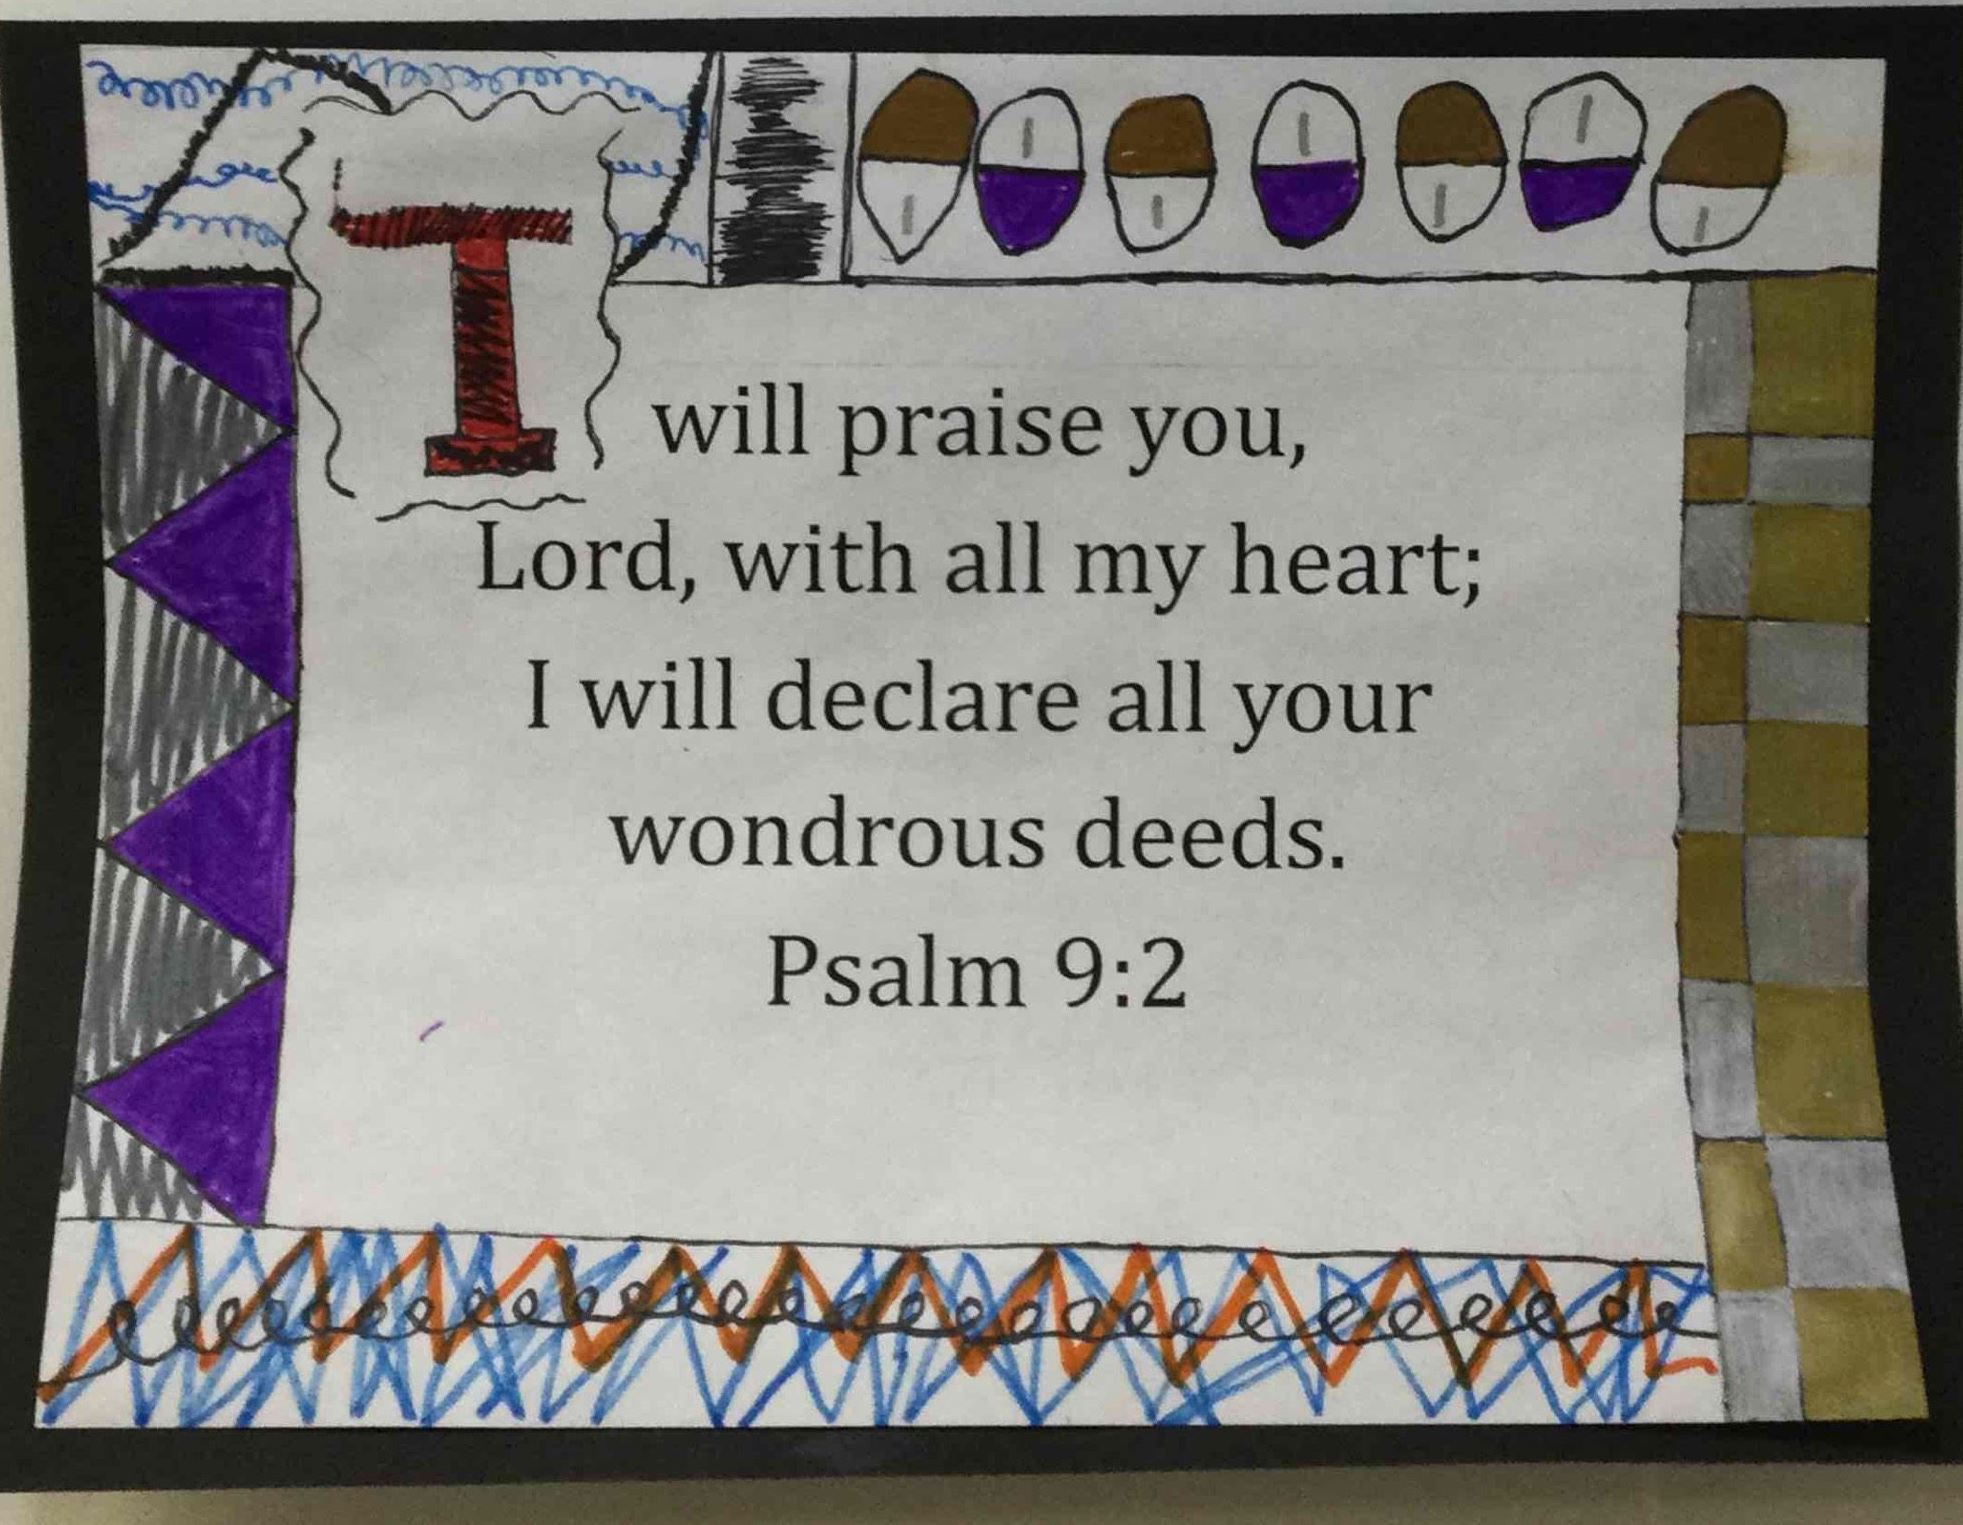 I will praise you,
Lord, with all my heart;
I will declare all your
wondrous deeds.
Psalm 9:2